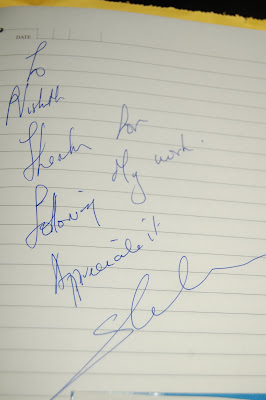 DATE
To
Nishith
Thanks for
following My work.
Appreciate it